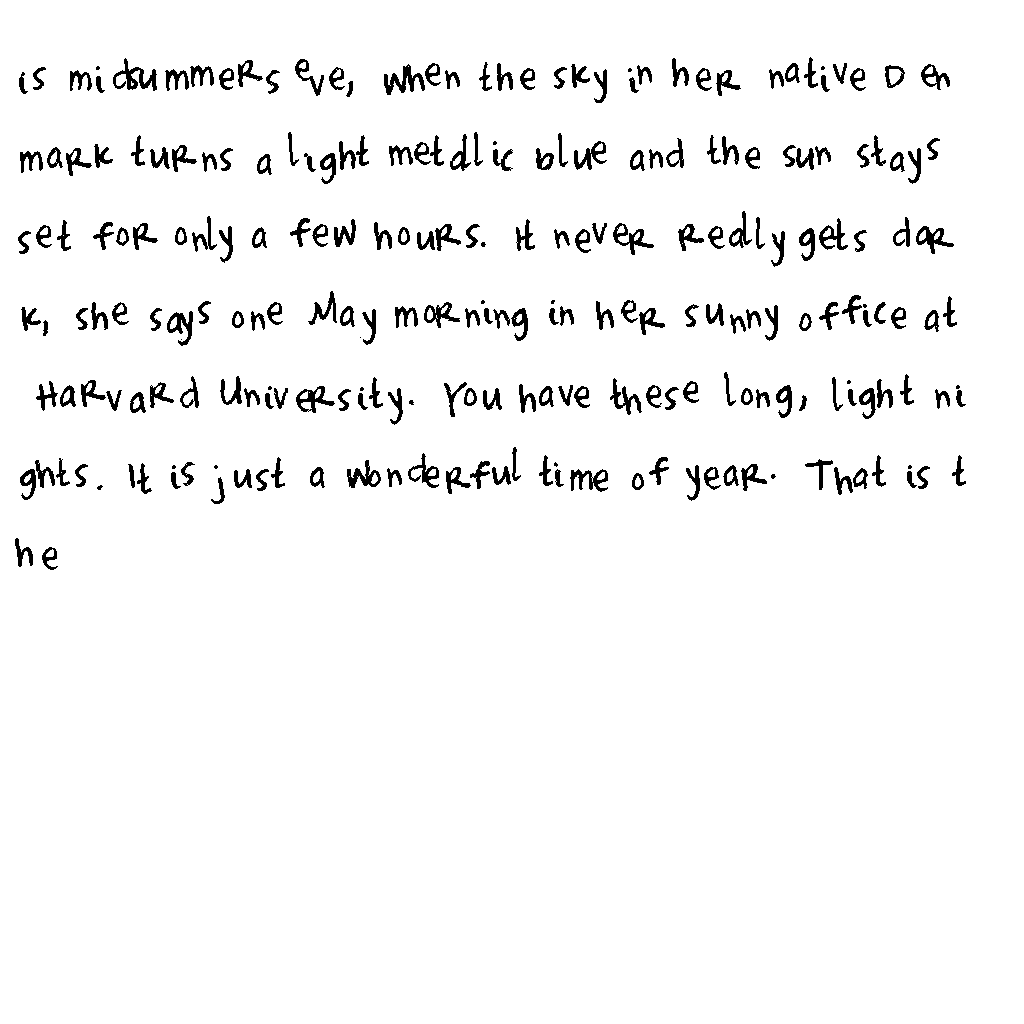 is midsummers eve, when the sky in her native Den
mark turns a light metallic blue and the sun stays
set for only a few hours. It never really gets dar
k, she says one May morning in her sunny office at
Harvard University. You have these long, light ni
ghts. It is just a wonderful time of year. That is t
he